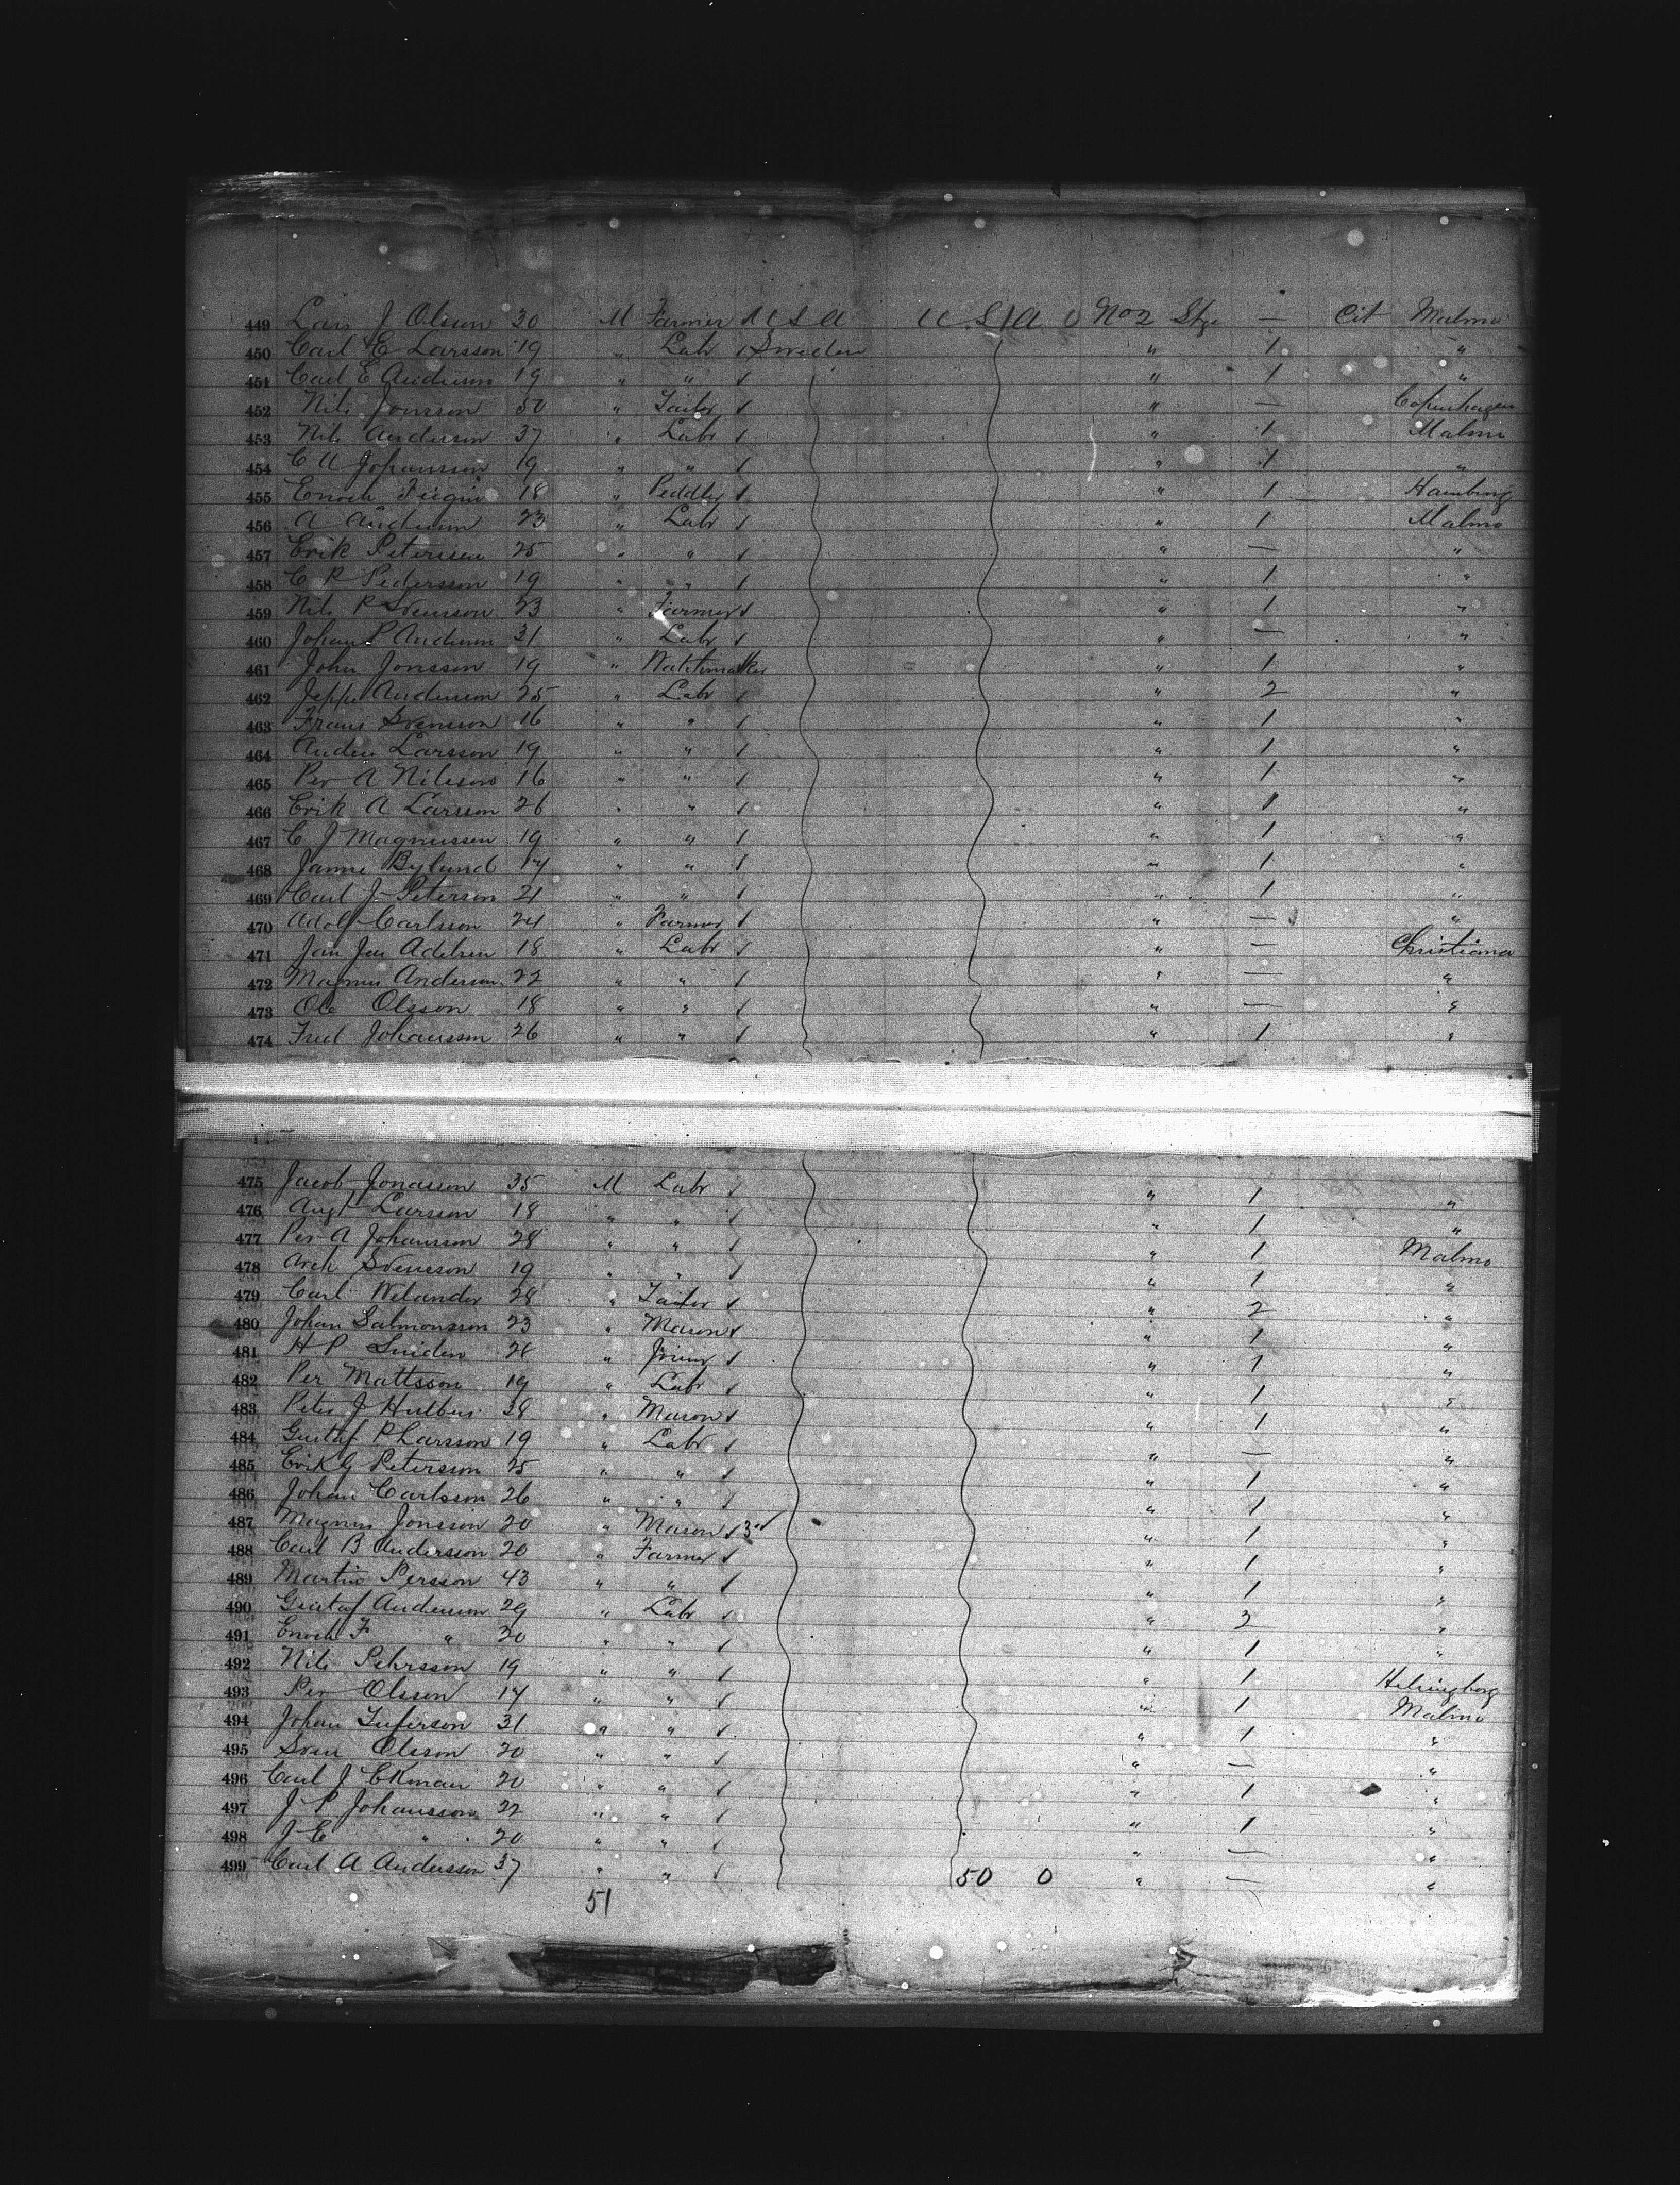 449 Lars J Olsson 30 M Farmer U S A U S A No 2 Stge — Cit Malmo
450 Carl E Larsson 19 " Labr Sweden " 1 "
451 Carl E Anderson 19 " " " 1 "
452 Nils Jonsson 50 " Tailor " — Copenhagen
453 Nils Anderson 37 " Labr " 1 Malmo
454 C A Johansson 19 " " " 1 "
455 Enoch 18 " Peddler " 1 Hamburg
456 A Anderson 23 " Labr " 1 Malmo
457 Erik Petersen 25 " " " — "
458 C P Pedersson 19 " " " 1 "
459 Nils P Svenson 23 " Farmer " 1 "
460 Johan P Anderson 31 " Labr " — "
461 John Jonsson 19 " Watchmaker " 1 "
462 Jeppe Anderson 25 " Labr " 2 "
463 Frans Svensson 16 " " " 1 "
464 Anders Larsson 19 " " " 1 "
465 Per A Nilsson 16 " " " 1 "
466 Erik A Larsson 26 " " " 1 "
467 C J Magnussen 19 " " " 1 "
468 Janne Bylund 17 " " " 1 "
469 Carl J Peterson 21 " " " 1 "
470 Adolf Carlsson 24 " Farmer " — "
471 18 " Labr " — Christiana
472 Magnus Anderson 22 " " " — "
473 Ole Olsson 18 " " " — "
474 Fred Johansson 26 " " " 1 "
475 Jacob Jonasson 35 M Labr " 1 "
476 Augt Larsson 18 " " " 1 "
477 Per A Johansson 28 " " " 1 Malmo
478 Svensson 19 " " " 1 "
479 Carl Welander 28 " Tailor " 2 "
480 Johan Salmonsson 23 " Mason " 1 "
481 H P 28 " Joiner " 1 "
482 Per Mattsson 19 " Labr " 1 "
483 Peter J 38 " Mason " 1 "
484 Gustaf P Larsson 19 " Labr " — "
485 Erik G Peterson 25 " " " 1 "
486 Johan Carlsson 26 " " " 1 "
487 Magnus Jonsson 20 " Mason " 1 "
488 Carl B Andersson 20 " Farmer " 1 "
489 Martin Persson 43 " " " 1 "
490 Gustaf Anderson 29 " Labr " 2 "
491 Enoch F " 20 " " " 1 "
492 Nils Pehrsson 19 " " " 1 Helsingborg
493 Per Olsson 17 " " " 1 Malmo
494 Johan 31 " " " 1 "
495 Sven Olsson 20 " " " — "
496 Carl J Ekman 20 " " " 1 "
497 J P Johansson 22 " " " 1 "
498 J E " 20 " " " — "
499 Carl A Andersson 37 " " 50 0 " — "
51